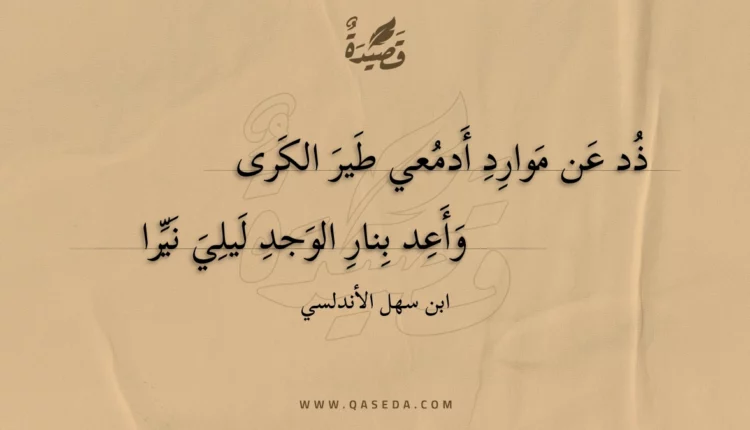 قَصِيدَةٌ
ذُد عَن مَوارِدِ أَدمُعي طَيرَ الكَرى
وَأَعِد بِنارِ الوَجدِ لَيلِيَ نَيِّرا
ابن سهل الأندلسي
WWW.QASEDA.COM